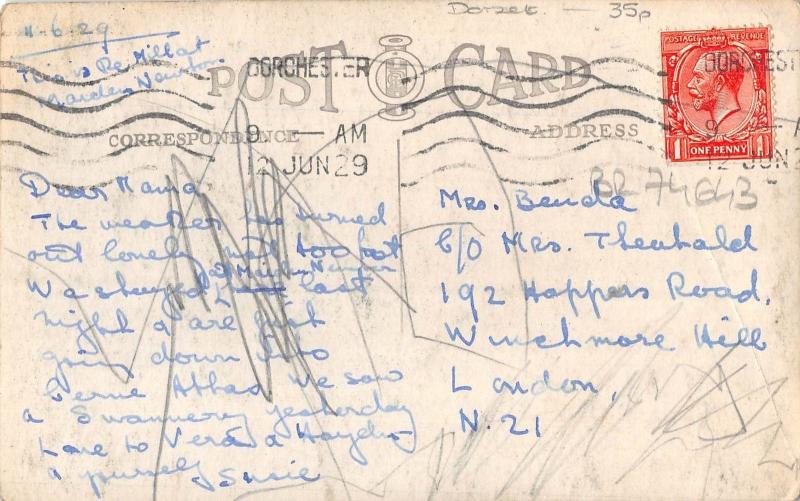 Dorset — 35p
11-6-29
This is the Mill at
Maiden Newton
POST CARD
DORCHESTER
9 — AM
12 JUN 29
DORCHEST
9 — A
12 JUN 2
POSTAGE REVENUE
ONE PENNY
CORRESPONDENCE
ADDRESS
BR 74643
Dear Mama,
The weather has turned
out lovely, not too hot
at Maiden Newton
We stayed here last
night & are just
going down into
Cerne Abbas. We saw
a Swannery yesterday
Love to Vera & Haydn
& yourself Susie
Mrs. Benda
C/O Mrs. Theobald
192 Hoppers Road,
Winchmore Hill
London,
N.21